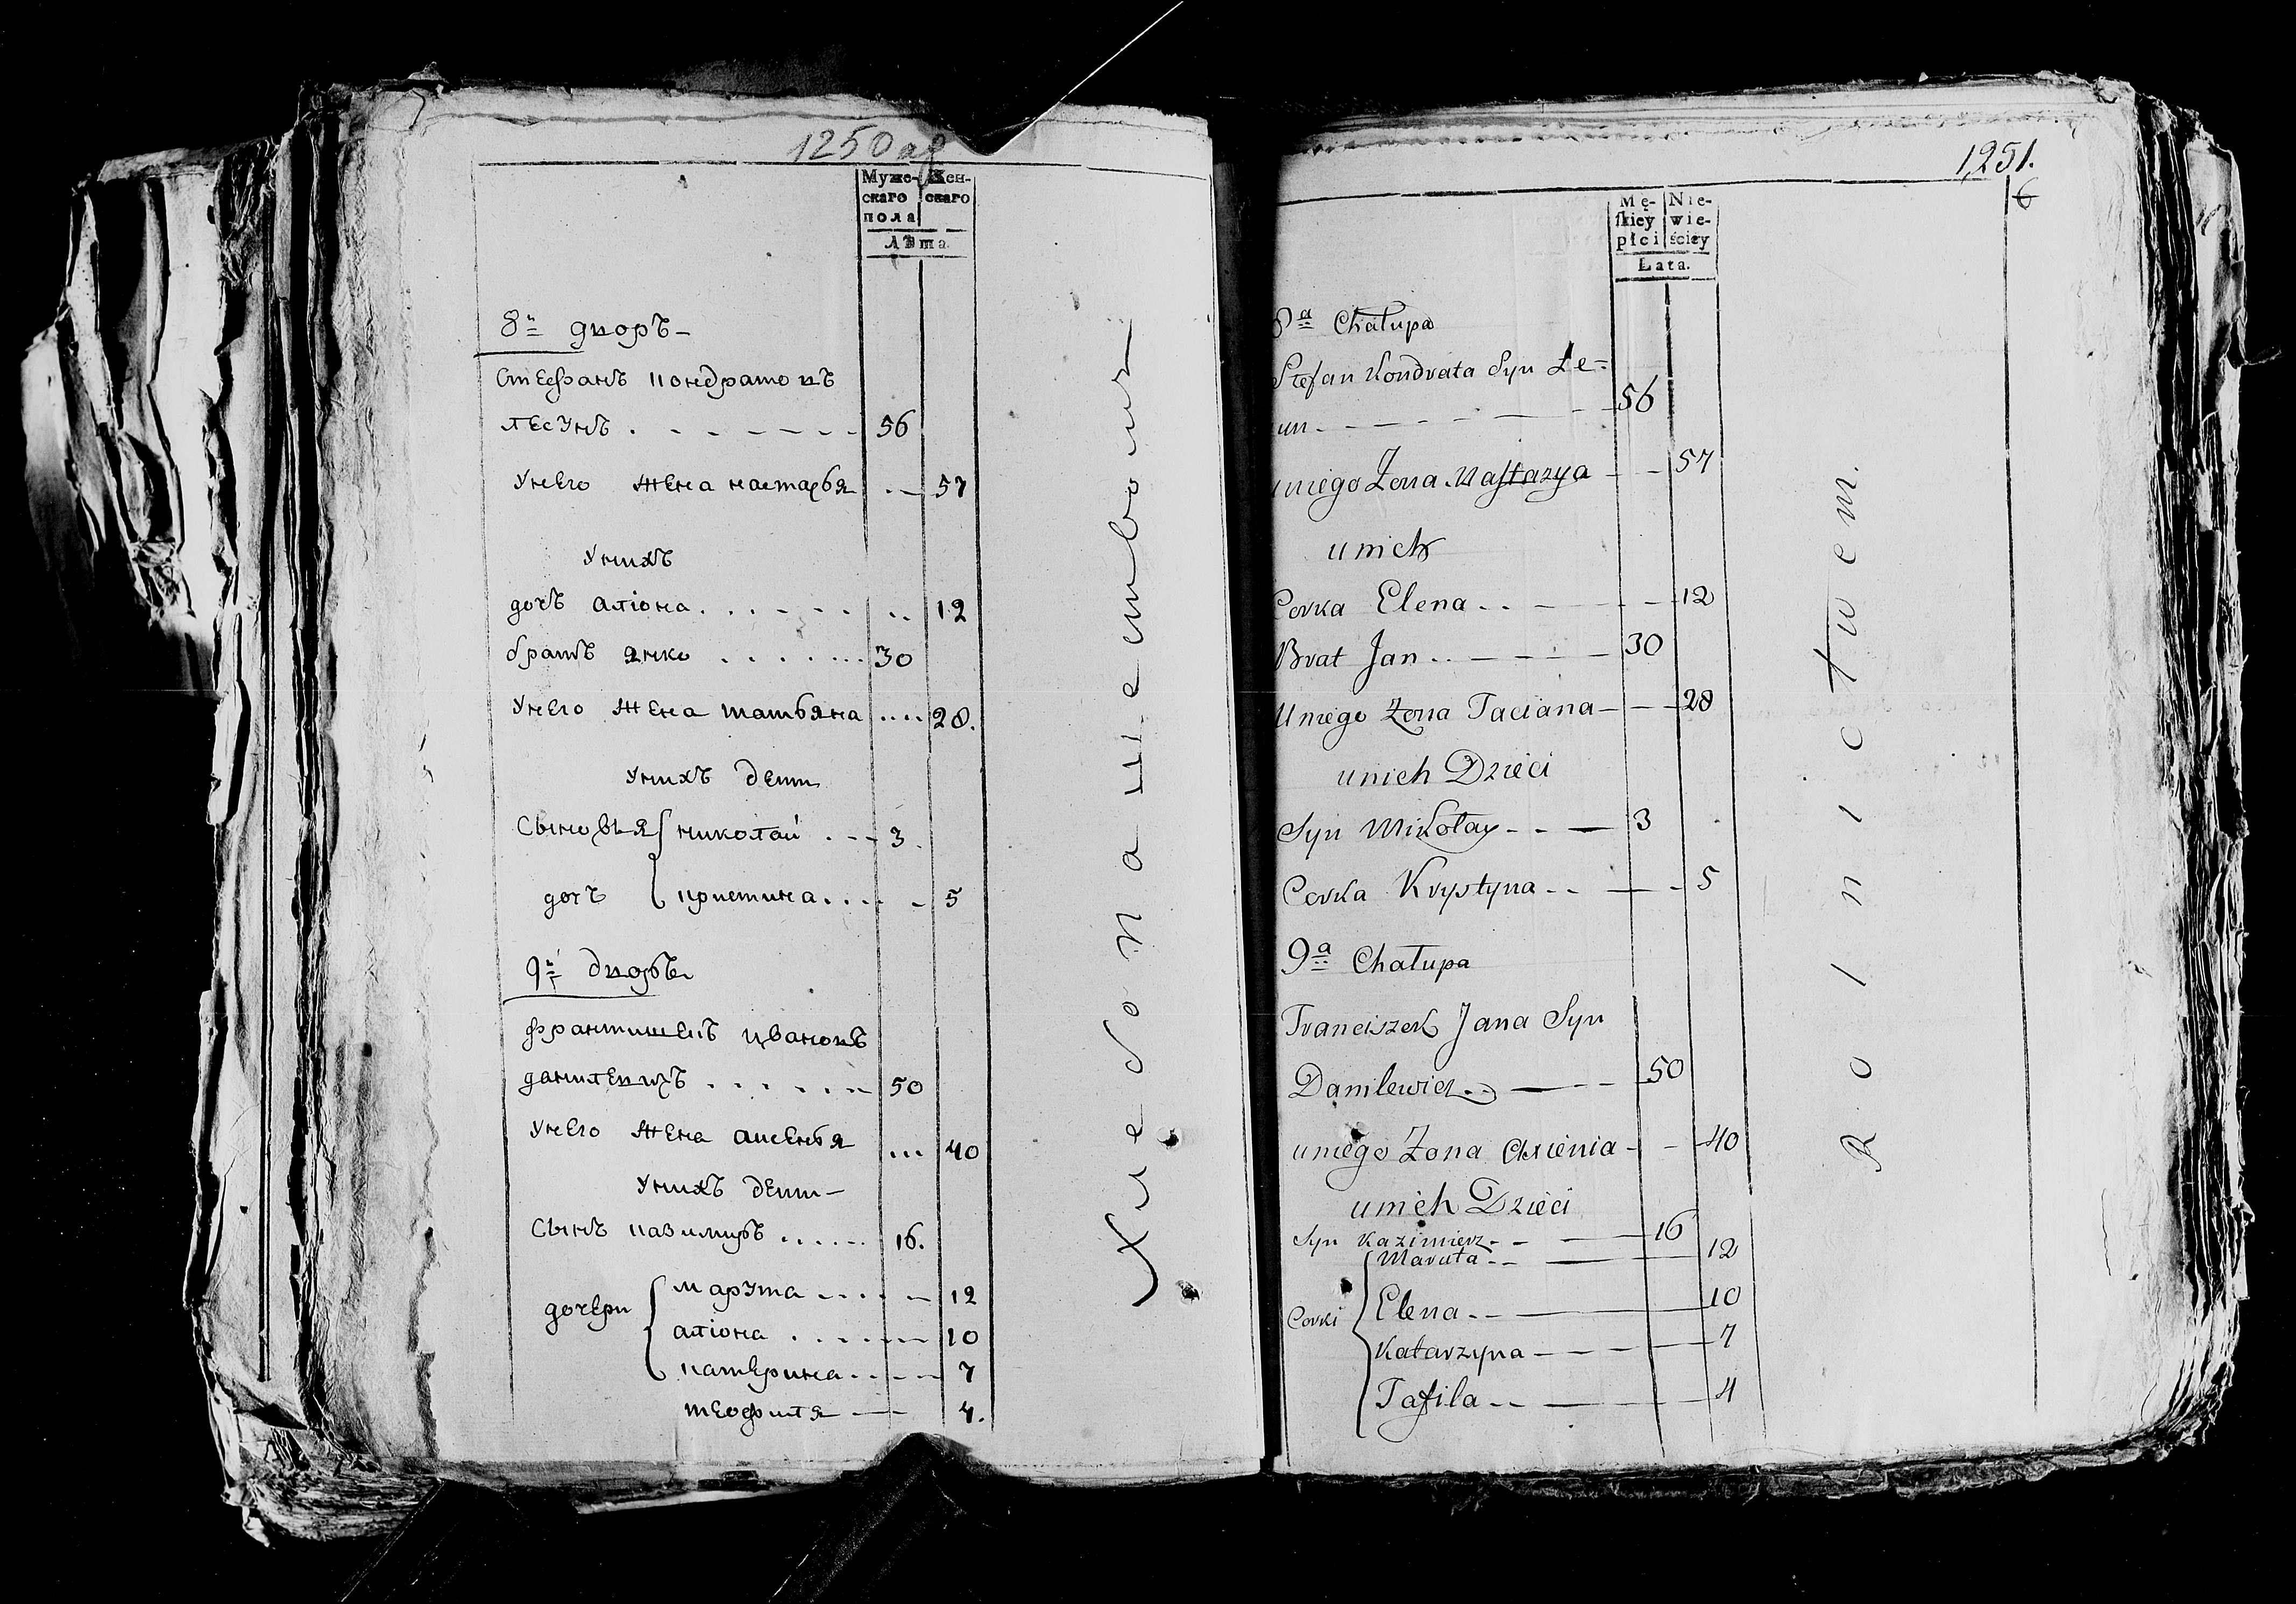 1250 об
Муже- Жен-
скаго скаго
пола
Лѣта
8й дворъ
Стефанъ кондратовъ
лесунъ 56
унего жена настарья 57
унихъ
дочь алiона 12
братъ янко 30
унего жена татьяна 28.
унихъ дети
Сыновья николай 3
дочь кристина 5
9й дворъ
франтишекъ ивановъ
данилевичъ 50
унего жена аксенья 40
унихъ дети
Сынъ казимиръ 16.
марута 12
дочери
алiона 10
катерина 7
теофиля 4.
Хлебопашествомъ
1251.
6
Mę- Nie-
skiey wie-
płci ściey
Łata.
8a Chałupa
Stefan Kondrata Syn Le-
un 56
uniego Zona Nastazya 57
unich
Corka Elena 12
Brat Jan 30
Uniego Zona Taciana 28
unich Dzieci
Syn Mikołay 3
Corka Krystyna 5
9a Chałupa
Franciszek Jana Syn
Danilewicz 50
uniego Zona Axienia 40
unich Dzieci
Syn Kazimierz 16
Maruta 12
Corki Elena 10
Katarzyna 7
Tafila 4
Rolnictwem.